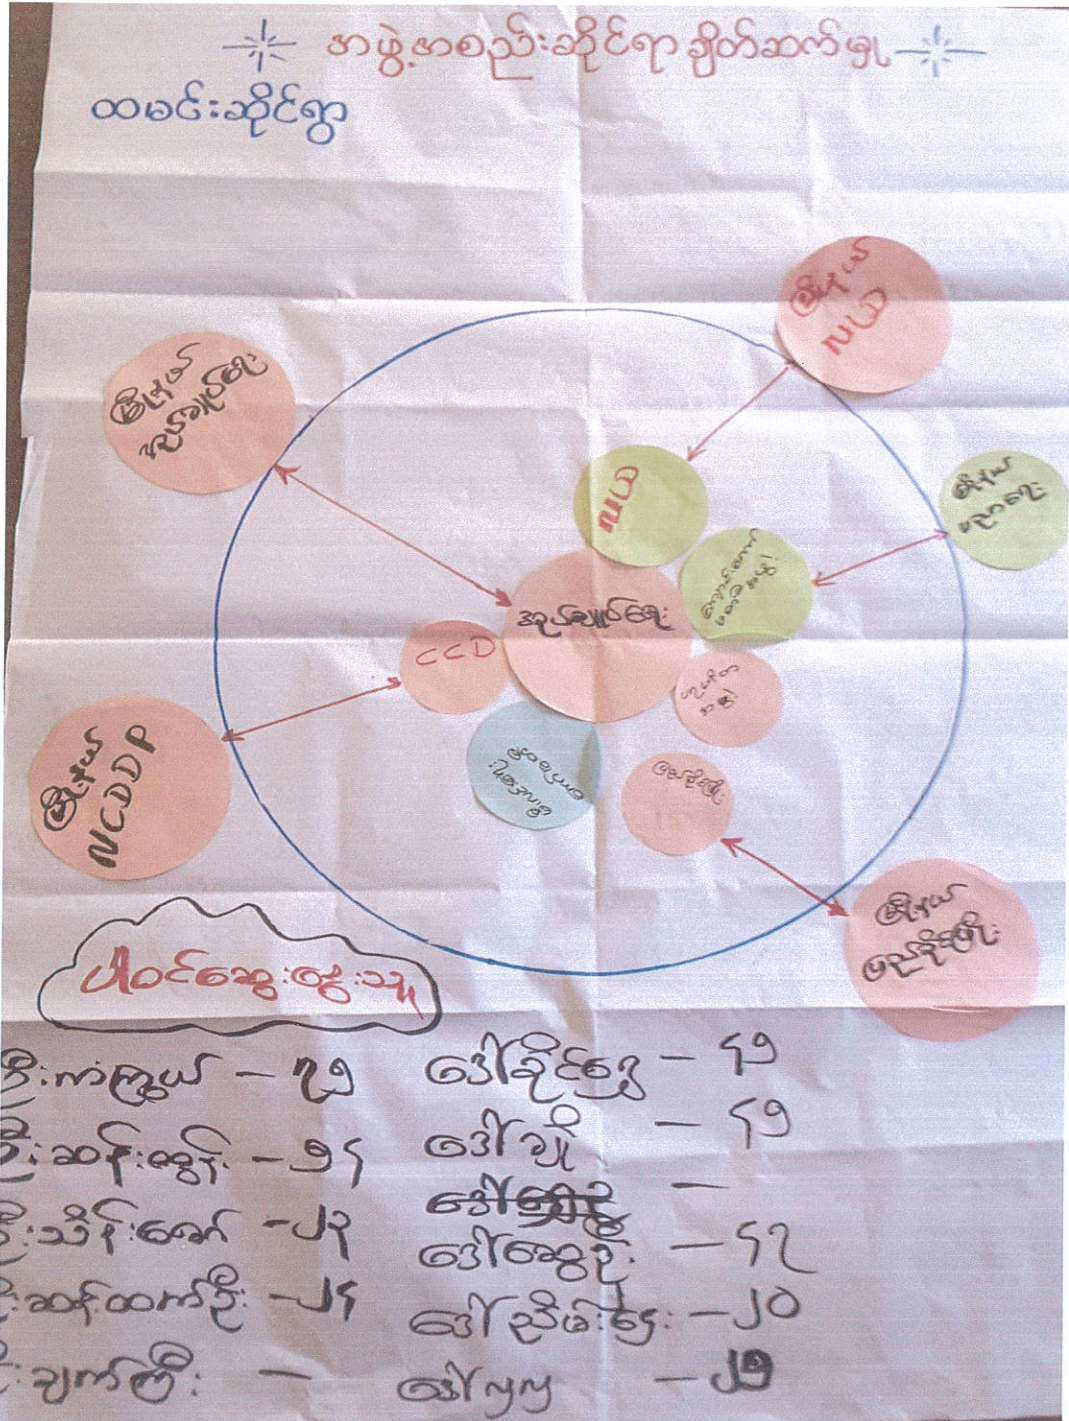 အဖွဲ့အစည်းဆိုင်ရာ ချိတ်ဆက်မှု
ထမင်းဆိုင်ရွာ
မြို့နယ်
လယ
မြို့နယ်
အုပ်ချုပ်ရေး
မြို့နယ်
ပညာရေး
လယ
အုပ်ချုပ်ရေး
CCD
မြို့နယ်
NCDDP
မြို့နယ်
ပြည်ခိုင်ဖြိုး
ပြည်ခိုင်ဖြိုး
ပါဝင်ဆွေးနွေးသူ
ဦးကံကြွယ် – ၇၅
ဦးဆန်းထွန်း – ၅၄
ဦးသိန်းဇော် – ၂၃
ဦးဆန်းထက်ဦး – ၂၄
ဦးချက်ကြီး –
ဒေါ်ခိုင်ဇွေ – ၄၅
ဒေါ်ချို – ၄၅
ဒေါ်ဆွေဦး – ၄၇
ဒေါ်ညိမ်းနွေး – ၂၀
ဒေါ်လှလှ – ၂၅